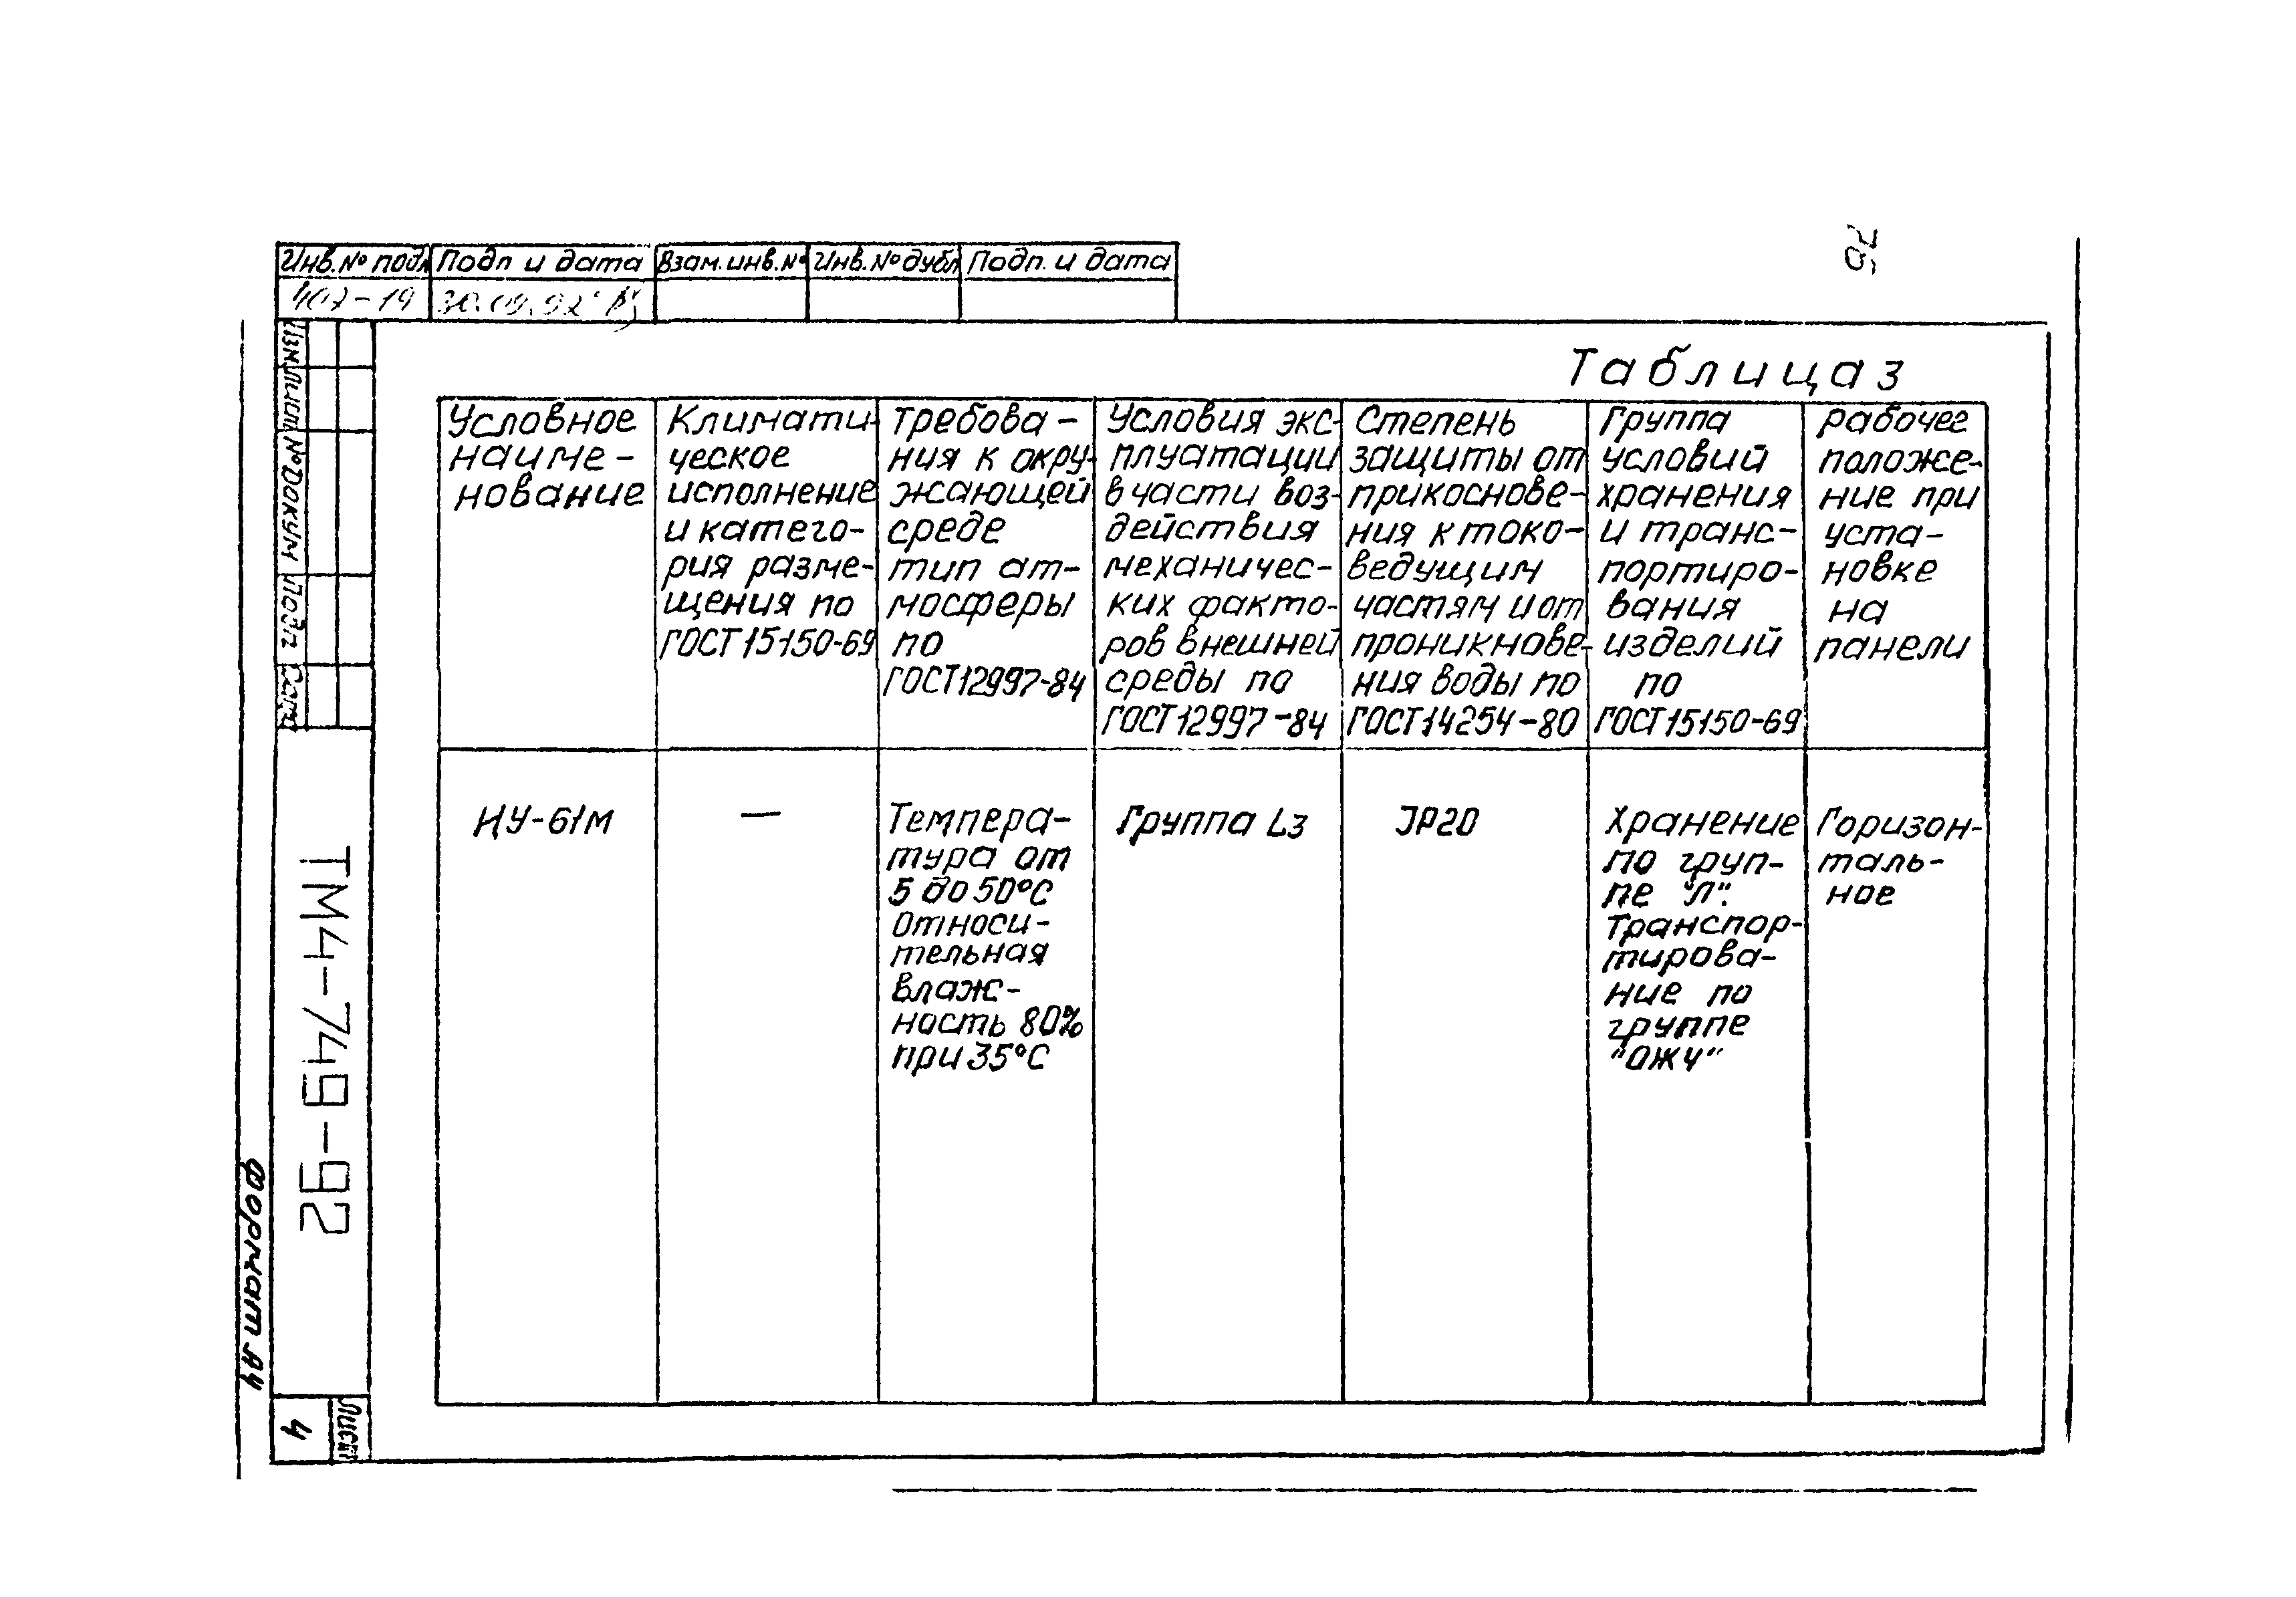 Инв.№ подл
Подп и дата
Взам.инв.№
Инв.№ дубл
Подп. и дата
407-19
30.09.92
Изм
Лист
№ докум
Подп
Дата
ТМ4-749-92
Лист
4
Формат А4
Таблица 3
Условное
наиме-
нование
Климати-
ческое
исполнение
и катего-
рия разме-
щения по
ГОСТ 15150-69
Требова-
ния к окру-
жающей
среде
тип ат-
мосферы
по
ГОСТ 12997-84
Условия экс-
плуатации
в части воз-
действия
механичес-
ких факто-
ров внешней
среды по
ГОСТ 12997-84
Степень
защиты от
прикоснове-
ния к токо-
ведущим
частям и от
проникнове-
ния воды по
ГОСТ 14254-80
Группа
условий
хранения
и транс-
портиро-
вания
изделий
по
ГОСТ 15150-69
Рабочее
положе-
ние при
уста-
новке
на
панели
НУ-61М
—
Темпера-
тура от
5 до 50°С
Относи-
тельная
влаж-
ность 80%
при 35°С
Группа L3
JP20
Хранение
по груп-
пе "Л".
Транспор-
тирова-
ние по
группе
"ОЖ4"
Горизон-
таль-
ное